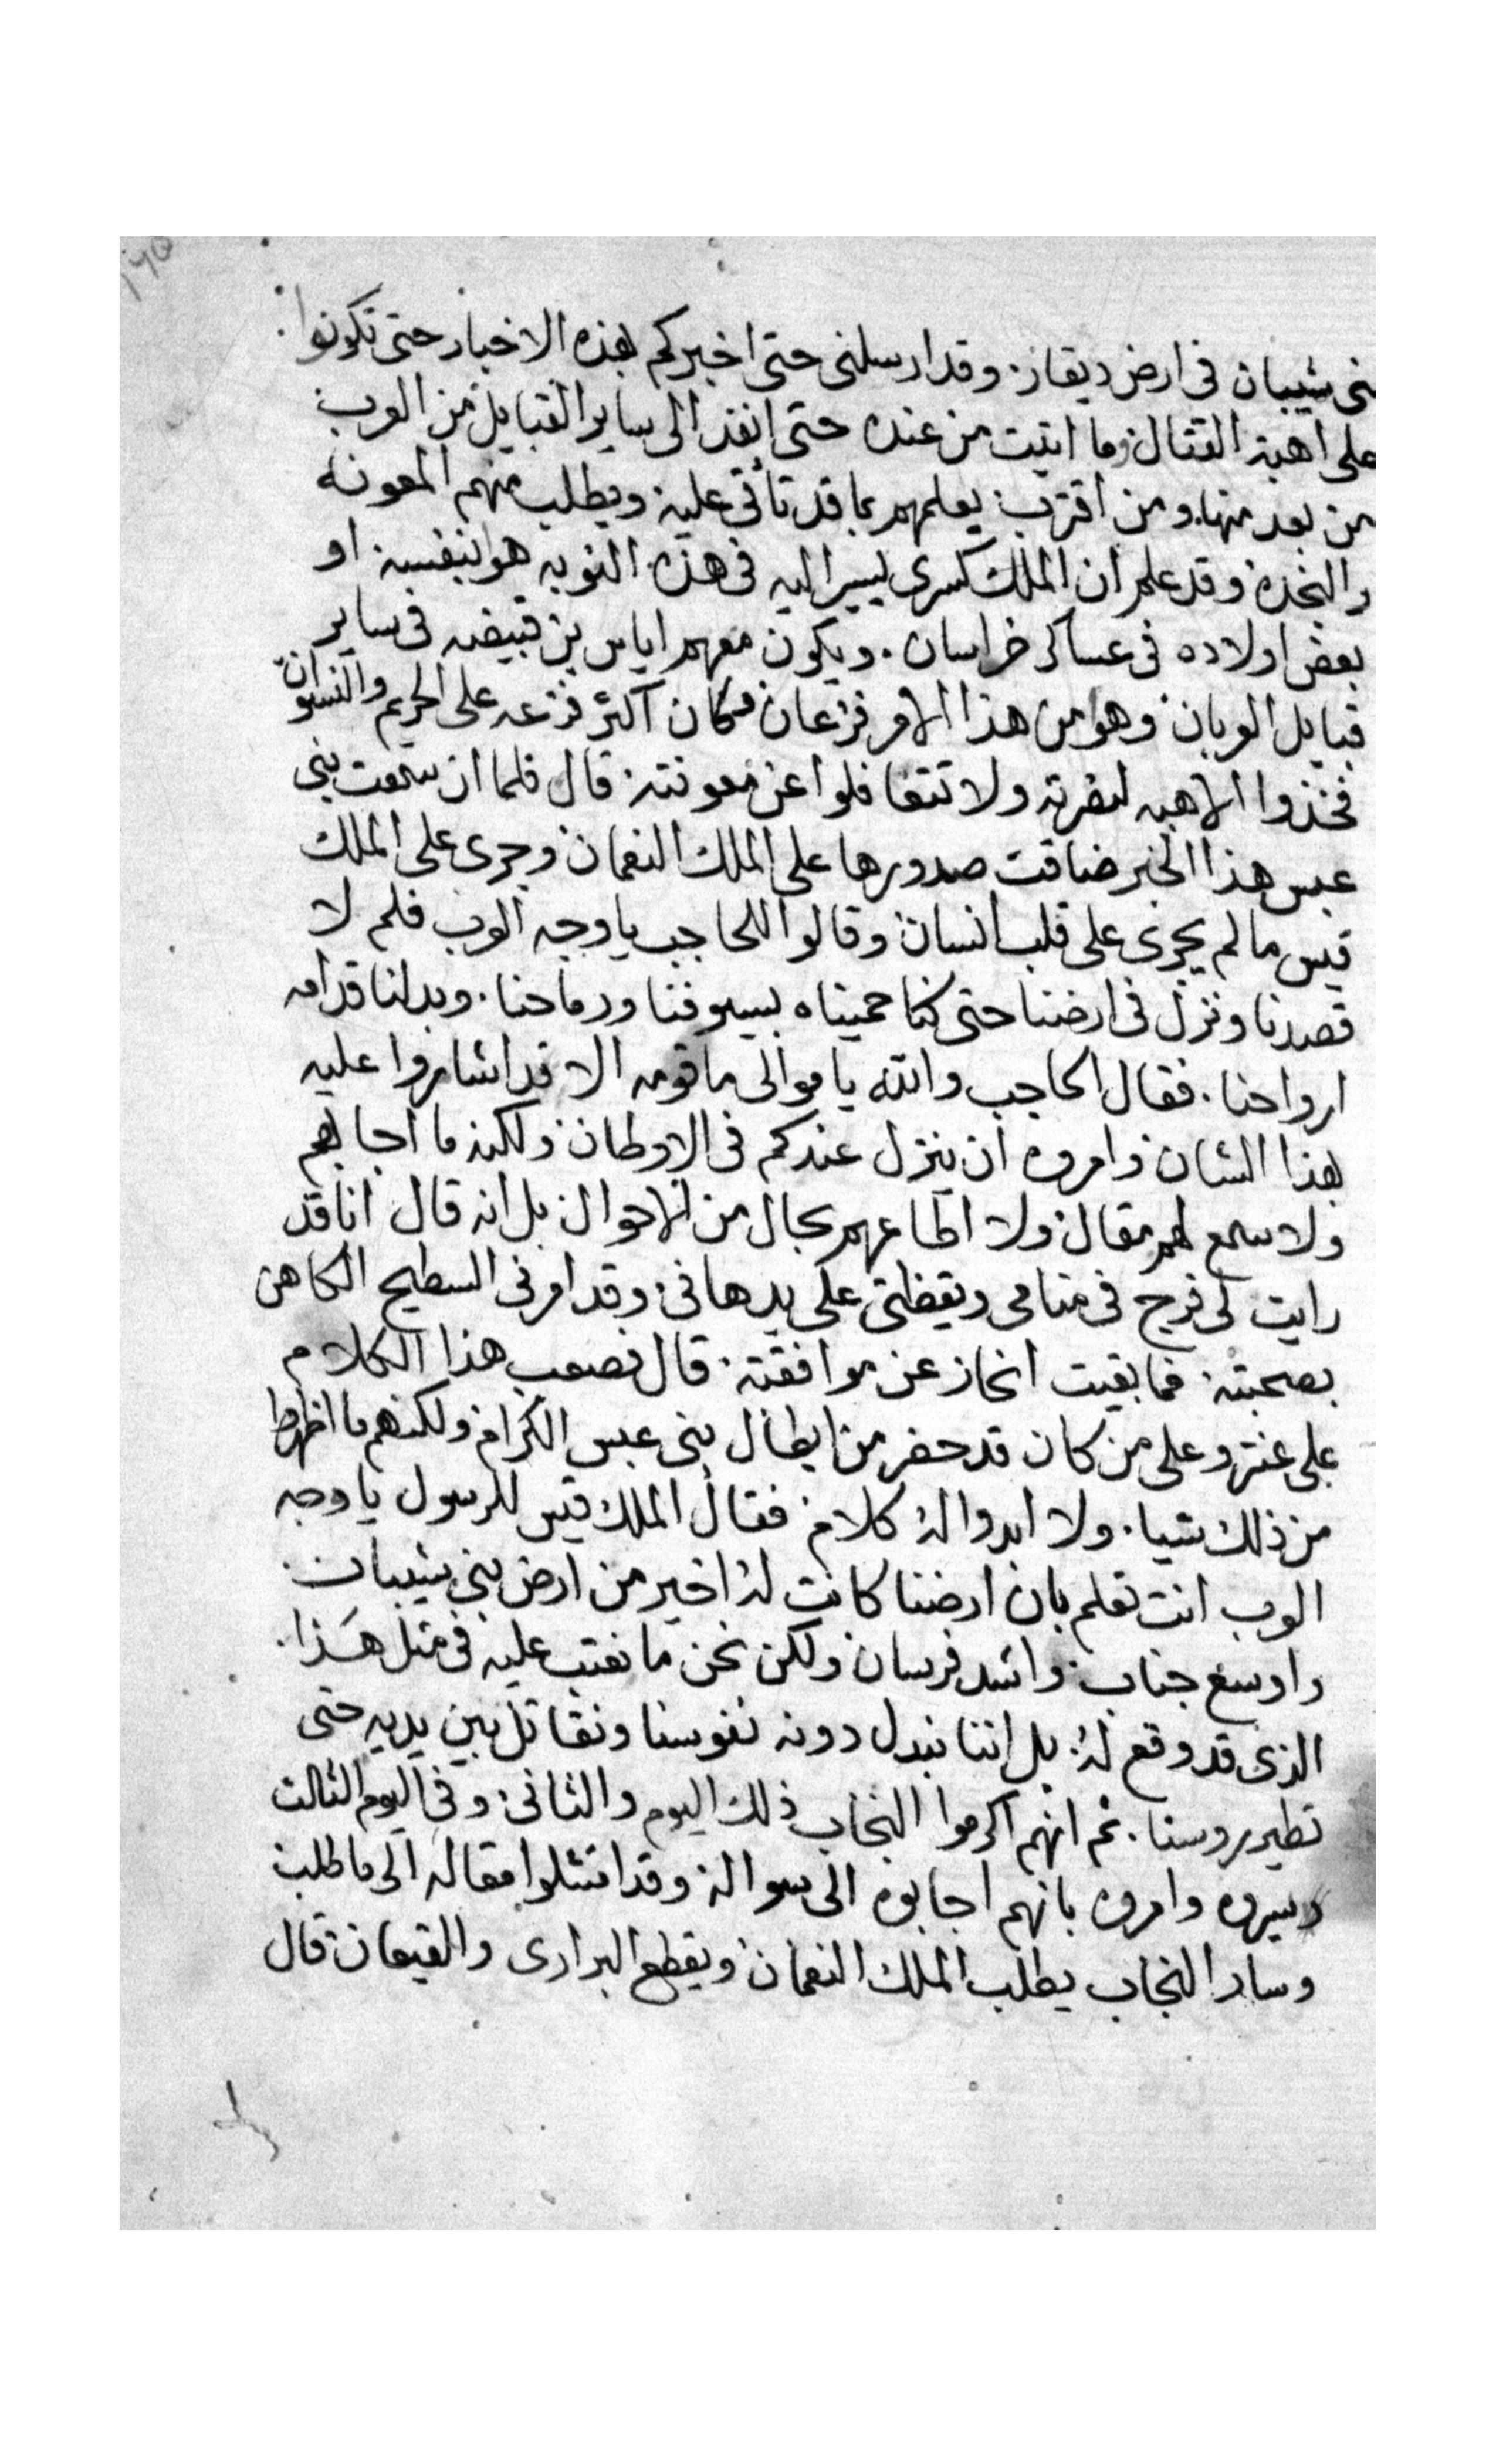 بنى شيبان فى ارض ديقار وقد ارسلنى حتى اخبركم بهذه الاخبار حتى تكونوا
على اهبة القتال وما اتيت من عنده حتى انفذ الى ساير القبايل من العرب
من بعد منها ومن اقترب يعلمهم بما قد تأتى عليه ويطلب منهم المعونه
والنجده وقد علم ان الملك كسرى يسير اليه فى هذه النوبه هو بنفسه او
بعض اولاده فى عساكر خراسان ويكون معهم اياس بن قبيضه فى ساير
قبايل العربان وهو من هذا الامر فزعان وكان اكثر فزعه على الحريم والنسوان
فخذوا الاهبه لنصرته ولا تتغافلوا عن معونته قال فلما ان سمعت بنى
عبس هذا الخبر ضاقت صدورها على الملك النعمان وجرى على الملك
قيس ما لم يجرى على قلب انسان وقالوا للحاجب يا وجه العرب فلم لا
قصدنا ونزل فى ارضنا حتى كنا حميناه بسيوفنا ورماحنا وبدلنا قدامه
ارواحنا فقال الحاجب والله يا موالى ما قومه الا قد اشاروا عليه
بهذا الشان وامروه ان ينزل عندكم فى الاوطان ولكنه ما اجابهم
ولا سمع لهم مقال ولا اطاعهم بحال من الاحوال بل انه قال انا قد
رايت لى فرج فى منامى ويقظتى على يد هانى وقد امرنى السطيح الكاهن
بصحبته فما بقيت انحاز عن موافقته قال فصعب هذا الكلام
على عنتر وعلى من كان قد حضر من ابطال بنى عبس الكرام ولكنهم ما اظهروا
من ذلك شيا ولا ابدوا له كلام فقال الملك قيس للرسول يا وجه
العرب انت تعلم بان ارضنا كانت له اخير من ارض بنى شيبان
واوسع جناب واشد فرسان ولكن نحن ما نعتب عليه فى مثل هذا
الذى قد وقع له بل اننا نبدل دونه نفوسنا ونقاتل بين يديه حتى
تطير روسنا ثم انهم اكرموا النجاب ذلك اليوم والثانى وفى اليوم الثالث
سيروه وامروه بانهم اجابوه الى سواله وقد امتثلوا مقاله الى ما طلب
وسار النجاب يطلب الملك النعمان ويقطع البرارى والقيعان قال